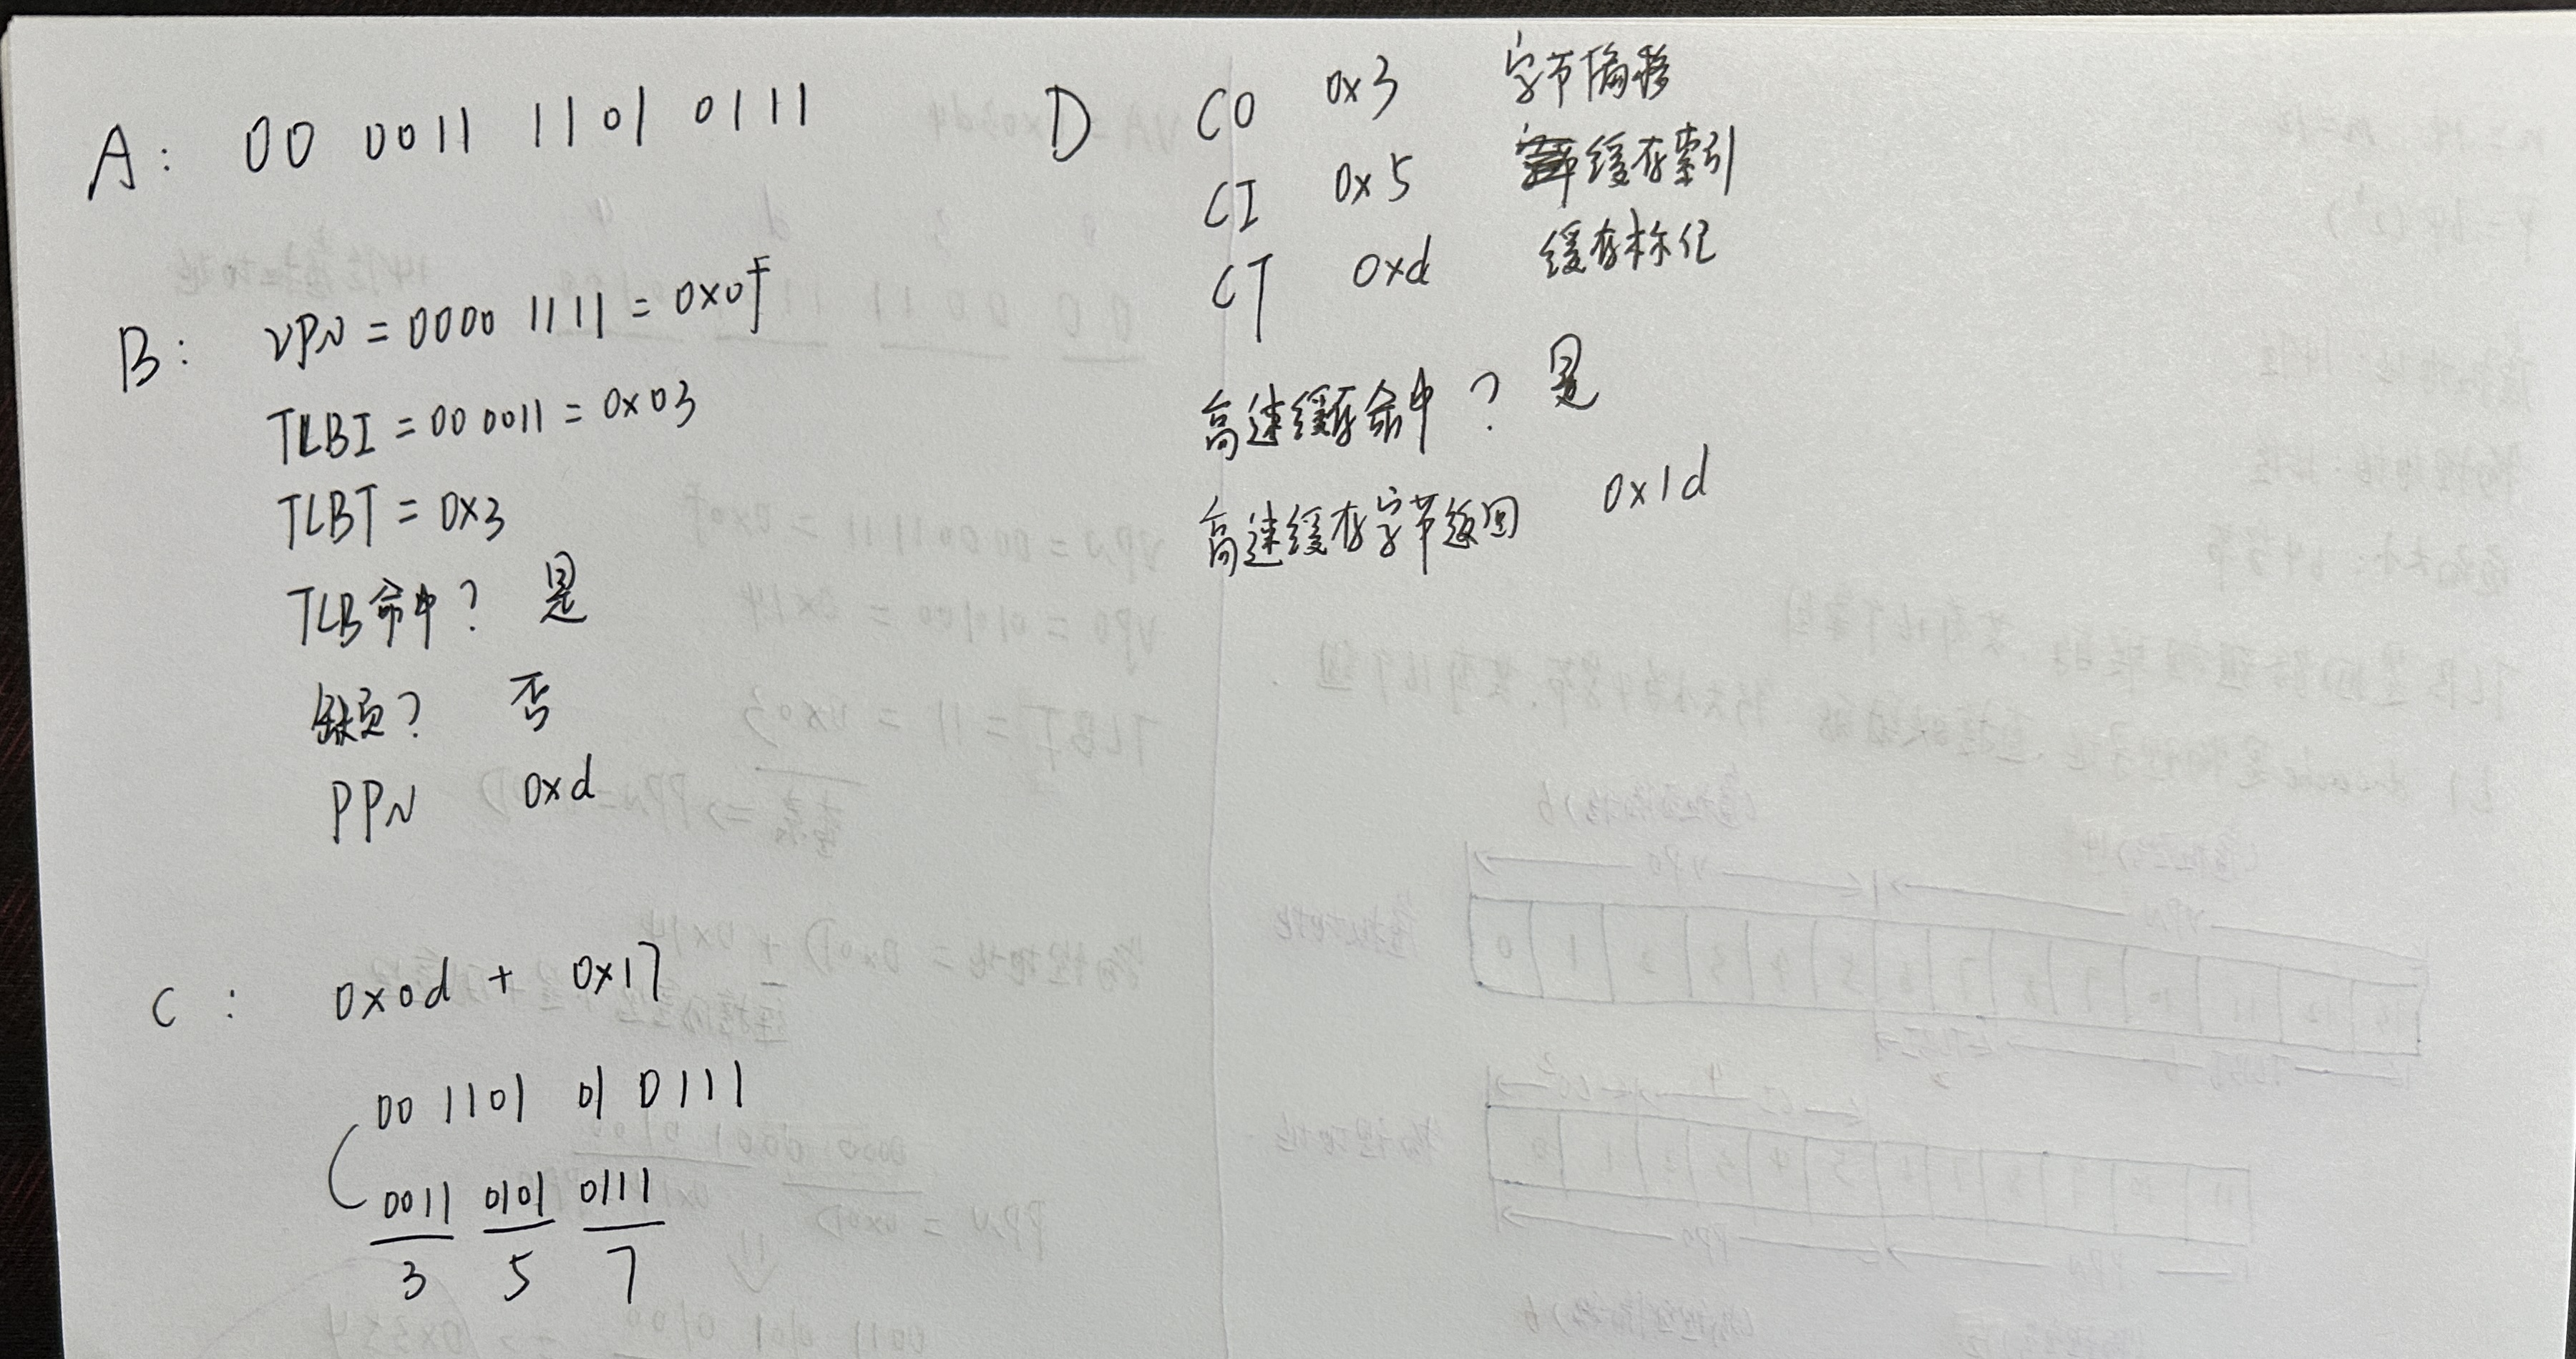 A: 00 0011 1101 0111
B: VPN = 0000 1111 = 0x0f
TLBI = 00 0011 = 0x03
TLBT = 0x3
TLB命中? 是
缺页? 否
PPN 0xd
C: 0x0d + 0x17
00 1101 01 0111
0011 0101 0111
3 5 7
D CO 0x3 字节偏移
CI 0x5 缓存索引
CT 0xd 缓存标记
高速缓存命中? 是
高速缓存字节返回 0x1d